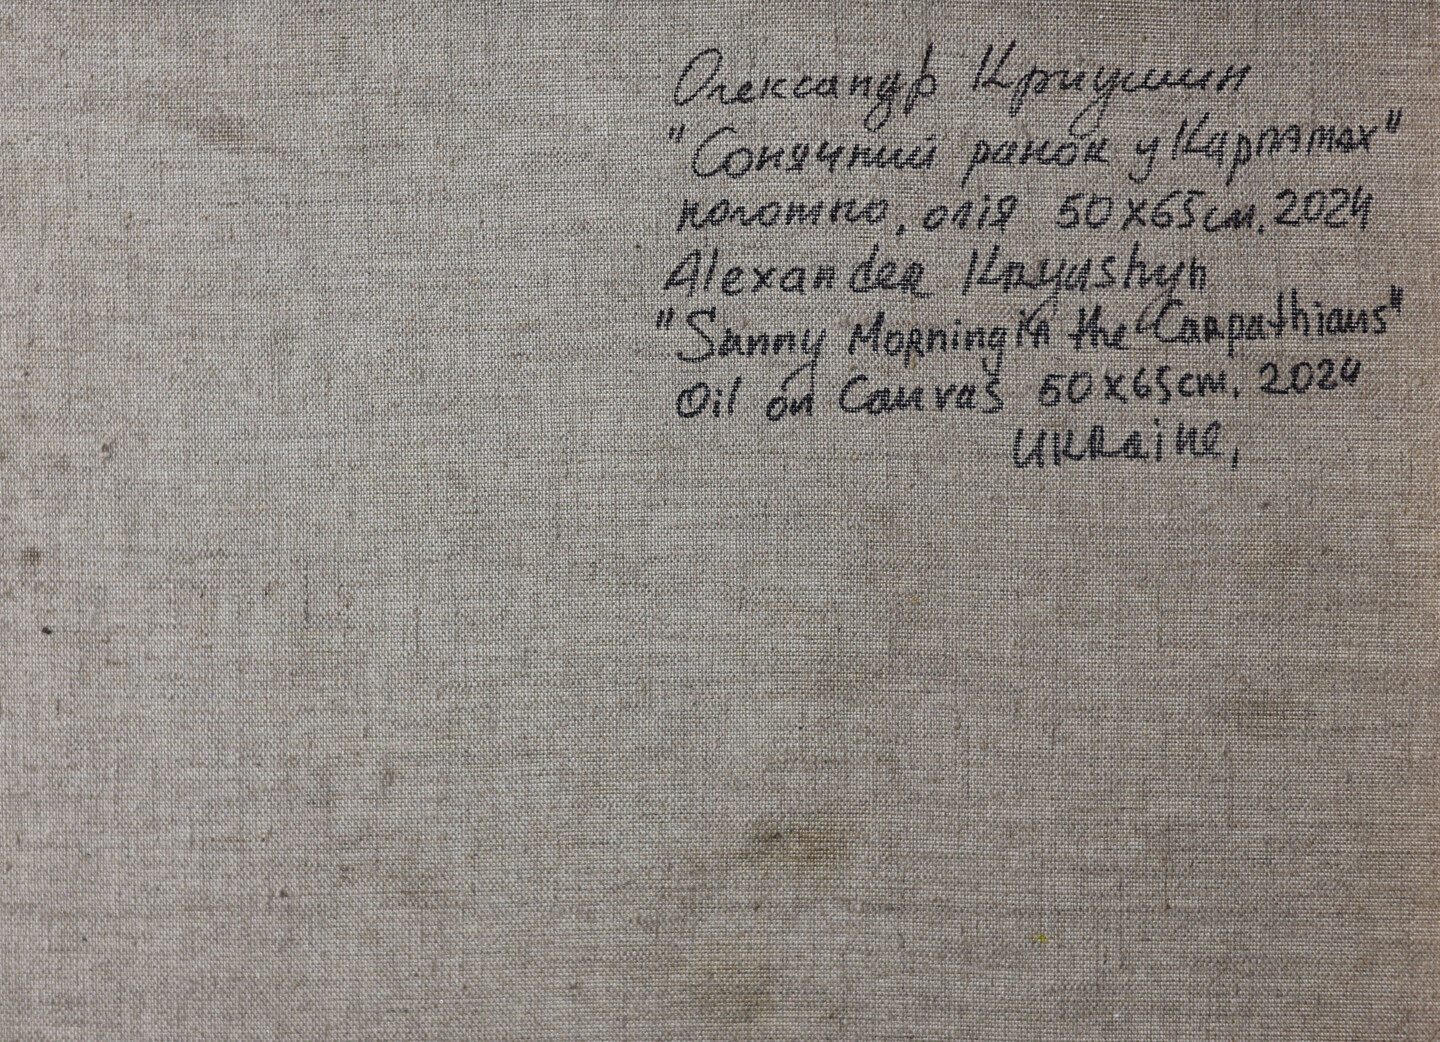 Олександр Криушин
"Сонячний ранок у Карпатах"
полотно, олія 50х65см. 2024
Alexander Kryushyn
"Sunny Morning in the "Carpathians"
Oil on Canvas 50x65cm. 2024
Ukraine,